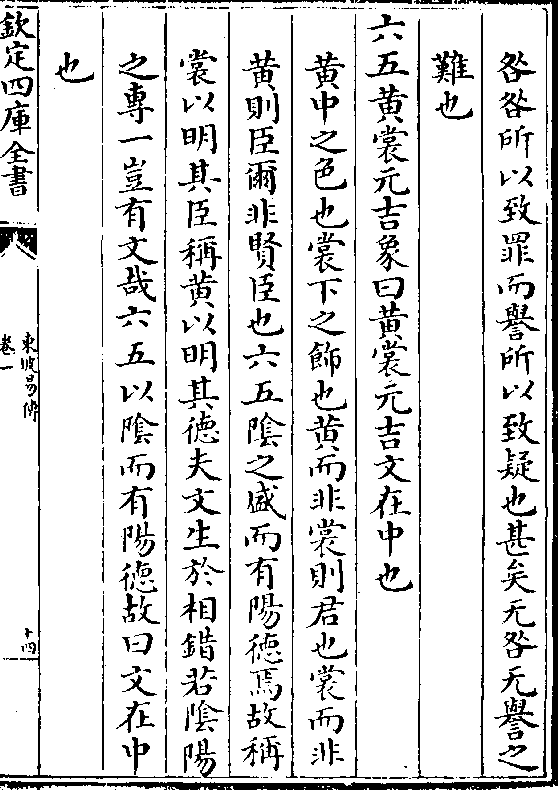 咎咎所以致罪而譽所以致疑也甚矣无咎无譽之
難也
六五黄裳元吉象曰黄裳元吉文在中也
黄中之色也裳下之飾也黄而非裳則君也裳而非
黄則臣爾非賢臣也六五隂之盛而有陽徳焉故稱
裳以明其臣稱黄以明其徳夫文生於相錯若隂陽
之專一豈有文哉六五以隂而有陽徳故曰文在中
也
欽定四庫全書
東坡易傳
卷一
十四